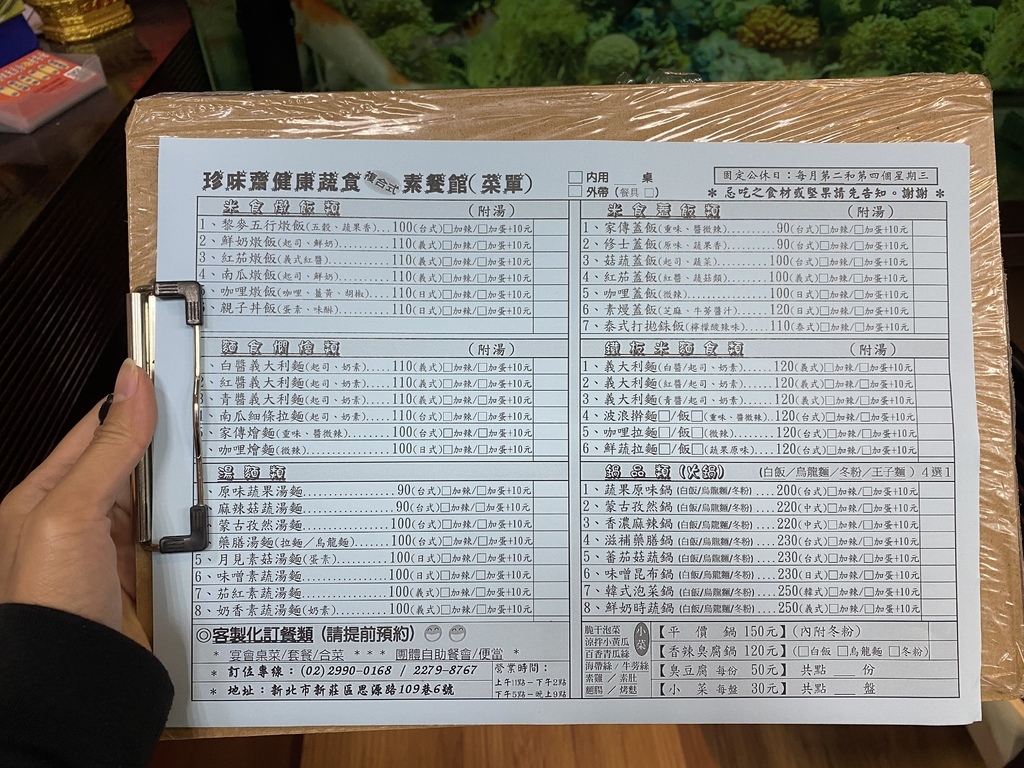 珍味齋健康蔬食複合式素餐館(菜單)
□內用 桌
□外帶(餐具 □)
固定公休日：每月第二和第四個星期三
＊忌吃之食材或堅果請先告知。謝謝＊
米食燉飯類 (附湯)
1、黎麥五行燉飯(五穀、蔬果香)...100(台式)□加辣/□加蛋+10元
2、鮮奶燉飯(起司、鮮奶)..........110(義式)□加辣/□加蛋+10元
3、紅茄燉飯(義式紅醬)............110(義式)□加辣/□加蛋+10元
4、南瓜燉飯(起司、鮮奶)..........110(義式)□加辣/□加蛋+10元
咖哩燉飯(咖哩、薑黃、胡椒).....110(日式)□加辣/□加蛋+10元
親子丼飯(蛋素、味醂)............110(日式)□加辣/□加蛋+10元
麵食燜燴類 (附湯)
白醬義大利麵(起司、奶素).....110(義式)□加辣/□加蛋+10元
紅醬義大利麵(起司、奶素).....110(義式)□加辣/□加蛋+10元
青醬義大利麵(起司、奶素).....110(義式)□加辣/□加蛋+10元
南瓜細條拉麵(起司、奶素).....110(義式)□加辣/□加蛋+10元
家傳燴麵(重味、醬微辣)........100(台式)□加辣/□加蛋+10元
咖哩燴麵(微辣)..................100(日式)□加辣/□加蛋+10元
湯麵類
原味蔬果湯麵.................90(台式)□加辣/□加蛋+10元
麻辣菇蔬湯麵.................90(台式)□加辣/□加蛋+10元
蒙古孜然湯麵................100(台式)□加辣/□加蛋+10元
藥膳湯麵(拉麵／烏龍麵)......100(台式)□加辣/□加蛋+10元
5、月見素菇湯麵(蛋素)..........100(日式)□加辣/□加蛋+10元
6、味噌素蔬湯麵................100(日式)□加辣/□加蛋+10元
7、茄紅素蔬湯麵................100(義式)□加辣/□加蛋+10元
8、奶香素蔬湯麵(奶素)..........100(義式)□加辣/□加蛋+10元
◎客製化訂餐類 (請提前預約)
＊ 宴會桌菜/套餐/合菜 ＊＊＊ 團體自助餐會/便當 ＊
＊ 訂位專線：(02)2990-0168 / 2279-8767
＊ 地址：新北市新莊區思源路109巷6號
營業時間：
上午11點－下午2點
下午5點－晚上9點
米食蓋飯類 (附湯)
1、家傳蓋飯(重味、醬微辣)..........90(台式)□加辣/□加蛋+10元
2、修士蓋飯(原味、蔬果香)..........90(台式)□加辣/□加蛋+10元
3、菇蔬蓋飯(起司、蔬菜)...........100(台式)□加辣/□加蛋+10元
4、紅茄蓋飯(紅醬、蔬菇類).........100(義式)□加辣/□加蛋+10元
5、咖哩蓋飯(微辣).................100(日式)□加辣/□加蛋+10元
6、素熳蓋飯(芝麻、牛蒡醬汁)......120(日式)□加辣/□加蛋+10元
7、泰式打拋銇飯(檸檬酸辣味).....110(泰式)□加辣/□加蛋+10元
鐵板米麵食類 (附湯)
1、義大利麵(白醬/起司、奶素).......120(義式)□加辣/□加蛋+10元
2、義大利麵(紅醬/起司、奶素).......120(義式)□加辣/□加蛋+10元
3、義大利麵(青醬/起司、奶素).......120(義式)□加辣/□加蛋+10元
4、波浪拼麵□/飯□(重味、醬微辣)..120(台式)□加辣/□加蛋+10元
5、咖哩拉麵□/飯□(微辣).........120(台式)□加辣/□加蛋+10元
6、鮮蔬拉麵□/飯□(蔬果原味).....120(台式)□加辣/□加蛋+10元
鍋品類 (火鍋) (白飯／烏龍麵／冬粉／王子麵) 4選1
1、蔬果原味鍋(白飯/烏龍麵/冬粉)....200(台式)□加辣/□加蛋+10元
2、蒙古孜然鍋(白飯/烏龍麵/冬粉)....220(中式)□加辣/□加蛋+10元
3、香濃麻辣鍋(白飯/烏龍麵/冬粉)....220(中式)□加辣/□加蛋+10元
4、滋補藥膳鍋(白飯/烏龍麵/冬粉)....230(台式)□加辣/□加蛋+10元
5、蕃茄菇蔬鍋(白飯/烏龍麵/冬粉)....230(台式)□加辣/□加蛋+10元
6、味噌昆布鍋(白飯/烏龍麵/冬粉)....230(日式)□加辣/□加蛋+10元
7、韓式泡菜鍋(白飯/烏龍麵/冬粉)....250(韓式)□加辣/□加蛋+10元
8、鮮奶時蔬鍋(白飯/烏龍麵/冬粉)....250(義式)□加辣/□加蛋+10元
脆干泡菜
涼拌小黃瓜
百香青瓜絲
海帶絲／牛蒡絲
素雞／素肚
麵腸／烤麩
小菜
【平 價 鍋 150元】(內附冬粉)
【香辣臭腐鍋 120元】(□白飯 □烏龍麵 □冬粉)
【臭豆腐 每份 50元】 共點 ___ 份
【小 菜 每盤 30元】 共點 ___ 盤